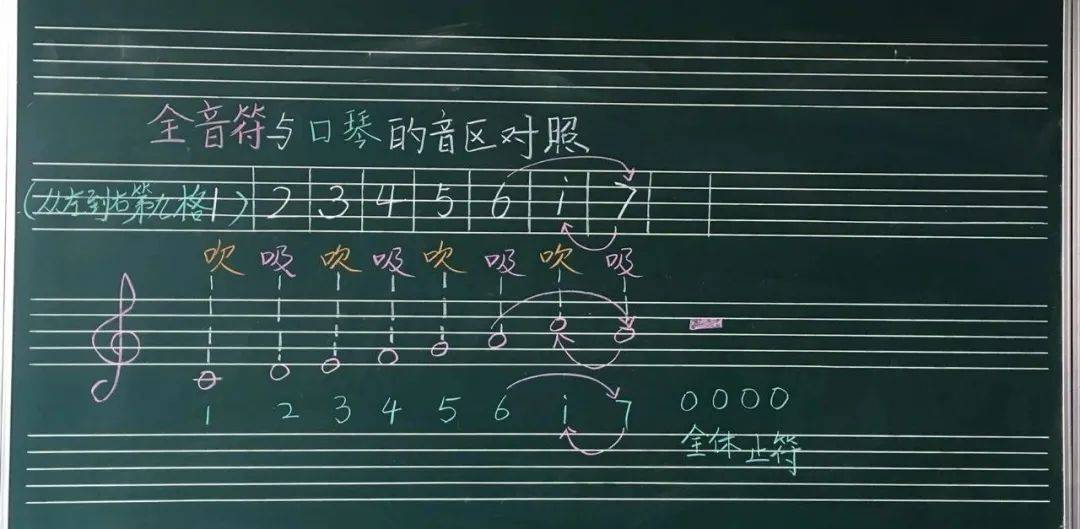 全音符与口琴的音区对照
(从左到右第九格1) 2 3 4 5 6 i 7
吹 吸 吹 吸 吹 吸 吹 吸
1 2 3 4 5 6 i 7 0000
全休止符